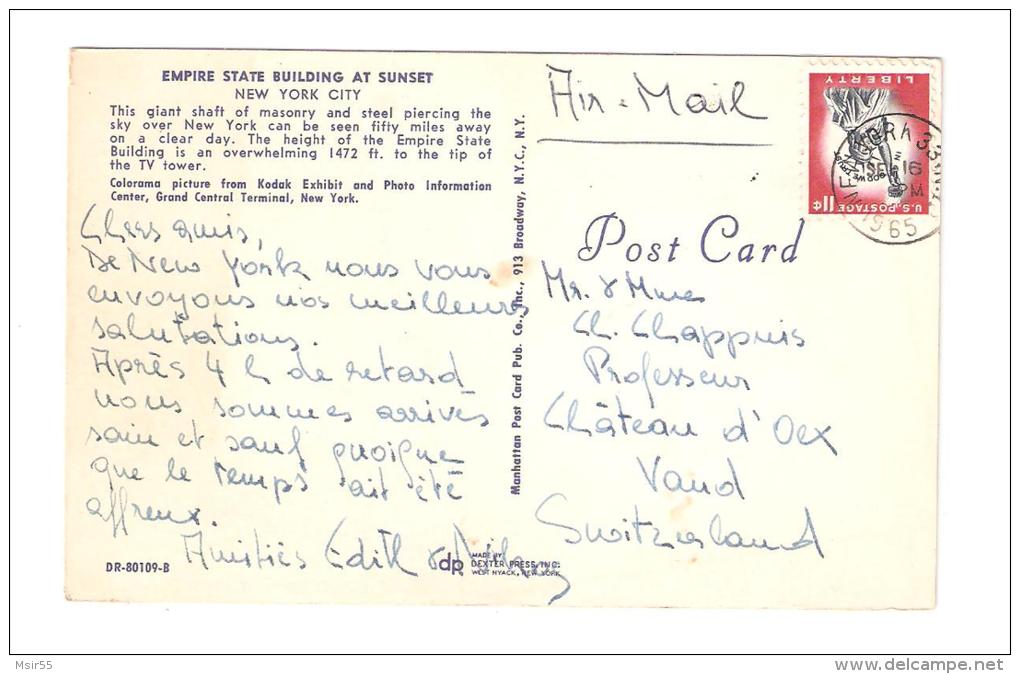 EMPIRE STATE BUILDING AT SUNSET
NEW YORK CITY
This giant shaft of masonry and steel piercing the
sky over New York can be seen fifty miles away
on a clear day. The height of the Empire State
Building is an overwhelming 1472 ft. to the tip of
the TV tower.
Colorama picture from Kodak Exhibit and Photo Information
Center, Grand Central Terminal, New York.
Chers amis,
De New York nous vous
envoyons nos meilleures
salutations.
Après 4 h de retard
nous sommes arrivés
sain et sauf quoique
que le temps ait été
affreux.
Amitiés Edith &
DR-80109-B
dp MADE BY
DEXTER PRESS, INC.
WEST NYACK, NEW YORK
Manhattan Post Card Pub. Co., Inc., 913 Broadway, N.Y.C., N.Y.
Air-Mail
LIBERTY
U.S. POSTAGE 11¢
16
PM
1965
Post Card
Mr. & Mme
Ch. Chappuis
Professeur
Château d'Oex
Vaud
Switzerland
Msir55
delcampe.net